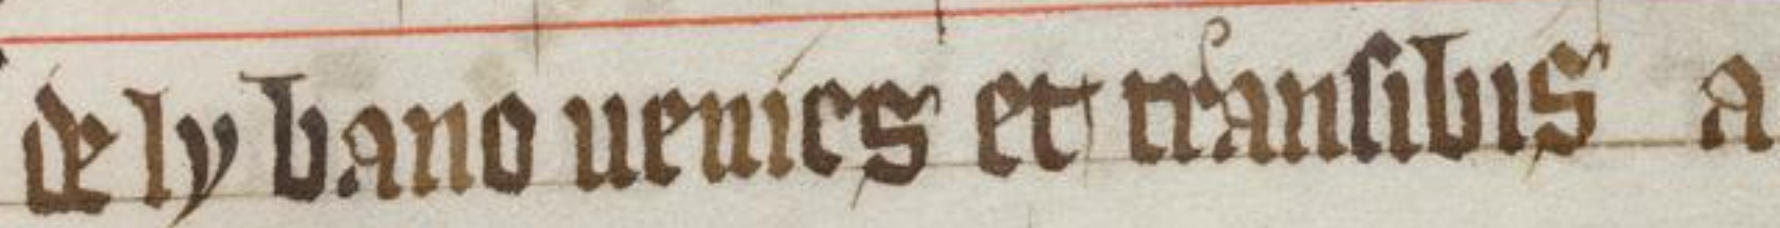 de ly bano uenies et transibis a